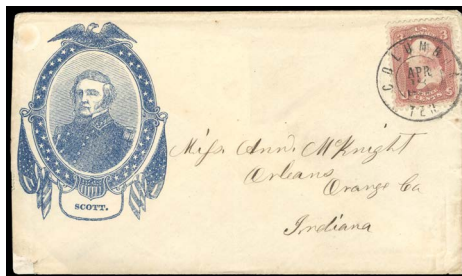 COLUMBIA
APR
TEN
3
SCOTT.
Miss. Ann. McKnight
Orleans
Orange Co
Indiana